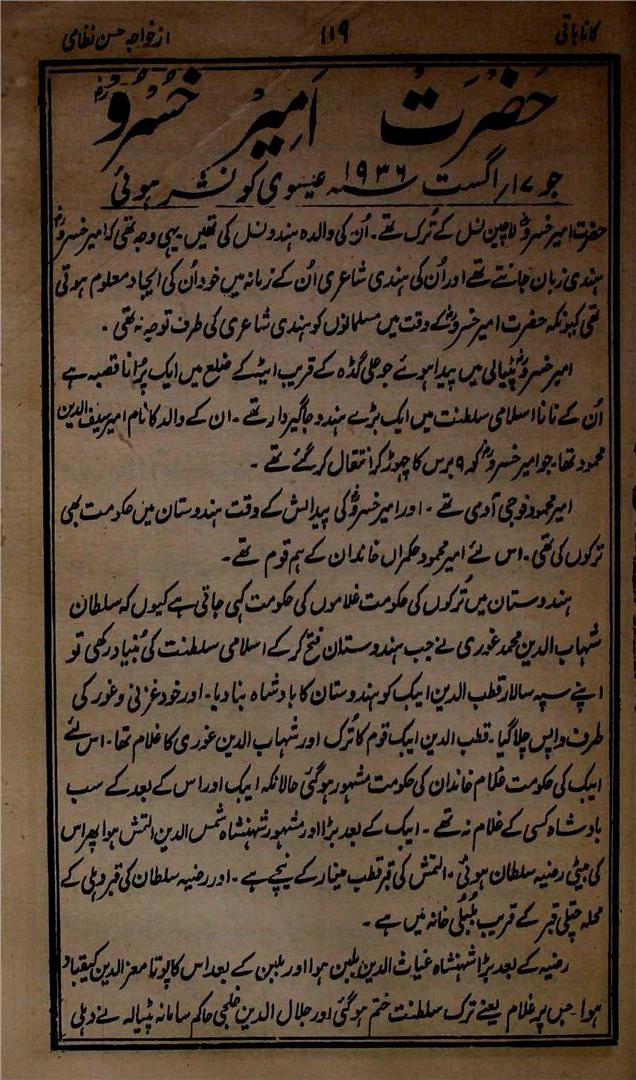 کانا باتی ۱۱۹ از خواجہ حسن نظامی
حَضْرَتْ اَمِیْر خُسْرُوْؒ
جو ۱۷/اگست ۱۹۳۶ سنہ عیسوی کو نشر ہوئی
حضرت امیر خسروؒ لاچین نسل کے تُرک تھے۔ اُن کی والدہ ہندو نسل کی تھیں۔ یہی وجہ تھی کہ امیر خسروؒ
ہندی زبان جانتے تھے اور اُن کی ہندی شاعری اُن کے زمانہ میں خود اُن کی ایجاد معلوم ہوتی
تھی کیونکہ حضرت امیر خسروؒ کے وقت میں مسلمانوں کو ہندی شاعری کی طرف توجہ نہ تھی۔
امیر خسروؒ پٹیالی میں پیدا ہوئے جو علی گڈہ کے قریب ایٹے کے ضلع میں ایک پُرانا قصبہ ہے
اُن کے نانا اسلامی سلطنت میں ایک بڑے ہندو جاگیردار تھے۔ ان کے والد کا نام امیر سیف الدین
محمود تھا۔ جو امیر خسروؒ کو ۹ برس کا چھوڑ کر انتقال کر گئے تھے۔
امیر محمود فوجی آدمی تھے۔ اور امیر خسروؒ کی پیدائش کے وقت ہندوستان میں حکومت بھی
ترکوں کی تھی۔ اس لئے امیر محمود حکمراں خاندان کے ہم قوم تھے۔
ہندوستان میں تُرکوں کی حکومت غلاموں کی حکومت کہی جاتی ہے کیوں کہ سلطان
شہاب الدین محمد غوری نے جب ہندوستان فتح کر کے اسلامی سلطنت کی بُنیاد رکھی تو
اپنے سپہ سالار قطب الدین ایبک کو ہندوستان کا بادشاہ بنا دیا۔ اور خود غزنی و غور کی
طرف واپس چلا گیا۔ قطب الدین ایبک قوم کا تُرک اور شہاب الدین غوری کا غلام تھا۔ اس لئے
ایبک کی حکومت غلام خاندان کی حکومت مشہور ہو گئی حالانکہ ایبک اور اس کے بعد کے سب
بادشاہ کسی کے غلام نہ تھے۔ ایبک کے بعد بڑا اور مشہور شہنشاہ شمس الدین التمش ہوا پھر اس
کی بیٹی رضیہ سلطان ہوئی۔ التمش کی قبر قطب مینار کے نیچے ہے۔ اور رضیہ سلطان کی قبر دہلی کے
محلہ چتلی قبر کے قریب بُلبُلی خانہ میں ہے۔
رضیہ کے بعد بڑا شہنشاہ غیاث الدین بلبن ہوا اور بلبن کے بعد اس کا پوتا معز الدین کیقباد
ہوا۔ جس پر غلام یعنے ترک سلطنت ختم ہو گئی اور جلال الدین خلجی حاکم سامانہ پٹیالہ نے دہلی